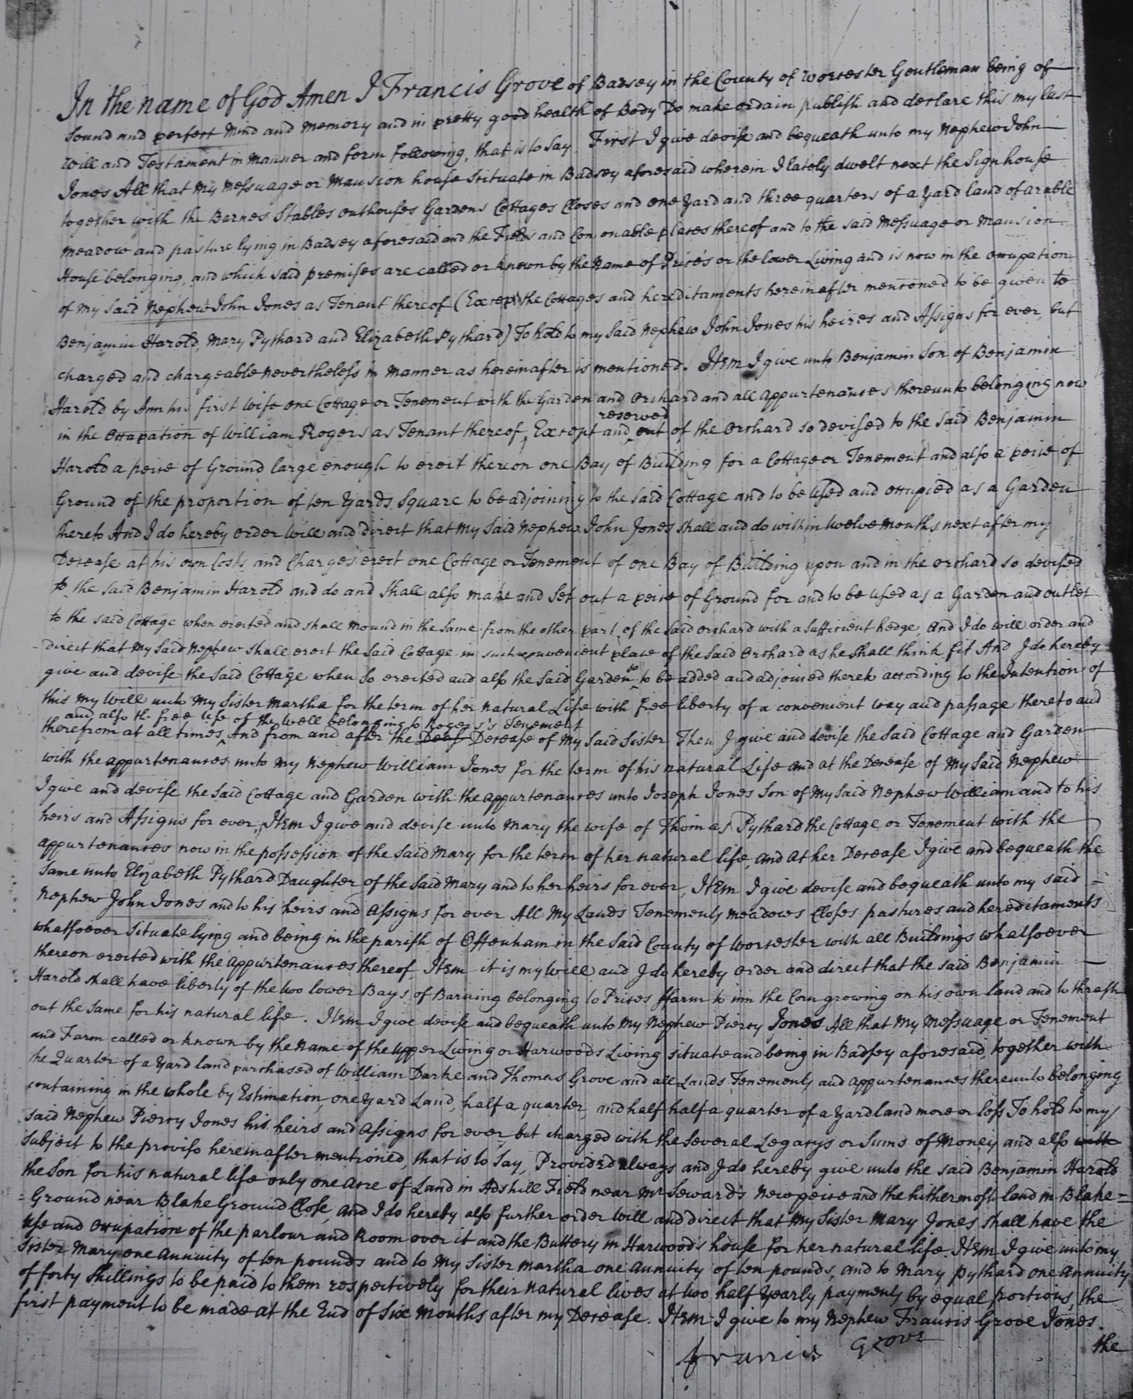 In the name of God Amen I Francis Grove of Badsey in the County of Worcester Gentleman being of
Sound and perfect Mind and Memory and in pretty good health of Body Do make ordain publish and declare this my last
Will and Testament in Manner and form following, that is to say. First I give devise and bequeath unto my Nephew John
Jones All that my Messuage or Mansion house Scituate in Badsey aforesaid wherein I lately dwelt next the Sign house
together with the Bernes Stables outhouses Gardens Cottages Closes and one Yard and three quarters of a Yard land of arable
meadow and pasture lying in Badsey aforesaid and the Fields and Comonable places thereof and to the said Messuage or Mansion
House belonging, and which said premises are called or known by the Name of Prices or the lower Living and is now in the occupation
of my Said Nephew John Jones as Tenant thereof (Except the Cottages and hereditaments hereinafter mencioned to be given to
Benjamin Harold, Mary Pythard and Elizabeth Pythard) To hold to my Said Nephew John Jones his heires and Assigns for ever, but
charged and chargeable nevertheless in manner as hereinafter is mentioned. Item I give unto Benjamin Son of Benjamin
Harold by Ann his first wife one Cottage or Tenement with the Garden and Orchard and all Appurtenances thereunto belonging now
in the Occupation of William Rogers as Tenant thereof, Except and reserved out of the Orchard so devised to the Said Benjamin
Harold a peice of Ground large enough to erect thereon one Bay of Building for a Cottage or Tenement and also a peice of
Ground of the proportion of ten Yards Square to be adjoining to the Said Cottage and to be used and occupied as a Garden
thereto And I do hereby order will and direct that my Said Nephew John Jones shall and do within twelve months next after my
Decease at his own Costs and Charges erect one Cottage or Tenement of one Bay of Building upon and in the orchard so devised
to the Said Benjamin Harold and do and shall also make and Set out a peice of Ground for and to be used as a Garden and outlet
to the said Cottage when erected and shall mound in the Same from the other part of the said orchard with a sufficient hedge And I do will order and
direct that my Said Nephew shall erect the Said Cottage in such convenient place of the Said Orchard as he shall think fit And I do hereby
give and devise the said Cottage when so erected and also the Said Garden so to be added and adjoined thereto according to the Intention of
this my Will unto my Sister Martha for the term of her natural Life with free liberty of a convenient way and passage thereto and
therefrom at all times, and also the free use of the Well belonging to Rogers's Tenement And from and after the Decease of my Said Sister Then I give and devise the Said Cottage and Garden
with the appurtenances unto my Nephew William Jones for the term of his natural Life and at the Decease of my Said Nephew
I give and devise the Said Cottage and Garden with the appurtenances unto Joseph Jones Son of my Said Nephew William and to his
heirs and Assigns for ever, Item I give and devise unto Mary the wife of Thomas Pythard the Cottage or Tenement with the
appurtenances now in the possession of the Said Mary for the term of her natural life, and At her Decease I give and bequeath the
Same unto Elizabeth Pythard Daughter of the Said Mary and to her heirs for ever, Item I give devise and bequeath unto my said
Nephew John Jones and to his heirs and Assigns for ever All my Lands Tenements meadows Closes pastures and hereditaments
whatsoever Situate lying and being in the parish of Offenham in the Said County of Worcester with all Buildings whatsoever
thereon erected with the Appurtenances thereof Item it is my Will and I do hereby order and direct that the said Benjamin
Harold shall have liberty of the two lower Bays of Barning belonging to Prices Farm to inn the Corn growing on his own land and to thrash
out the Same for his natural life. Item I give devise and bequeath unto my Nephew Piercy Jones All that my Messuage or Tenement
and Farm called or known by the Name of the Upper Living or Harwoods Living situate and being in Badsey aforesaid together with
the Quarter of a Yard land purchased of William Darke and Thomas Grove and all Lands Tenements and appurtenances thereunto belonging
containing in the whole by Estimation one Yard Land, half a quarter and half half a quarter of a Yard land more or less To hold to my
said Nephew Piercy Jones his heirs and Assigns for ever but charged with the several Legacys or Sums of Money and also
Subject to the proviso hereinafter mentioned, that is to Say, Provided always and I do hereby give unto the said Benjamin Harold
the Son for his natural life only one Acre of Land in Adshill Field near Mr Seward's New peice and the hithermost land in Blake=
=Ground near Blake Ground Close, and I do hereby also further order will and direct that my Sister Mary Jones shall have the
use and occupation of the parlour and Room over it and the Buttery in Harwoods house for her natural life. Item I give unto my
Sister Mary one Annuity of ten pounds and to my Sister Martha one Annuity of ten pounds, and to Mary Pythard one Annuity
of forty Shillings to be paid to them respectively for their natural lives at two half Yearly payments by equal portions, the
first payment to be made at the End of Six Months after my Decease. Item I give to my Nephew Francis Grove Jones.
the
Francis Grove